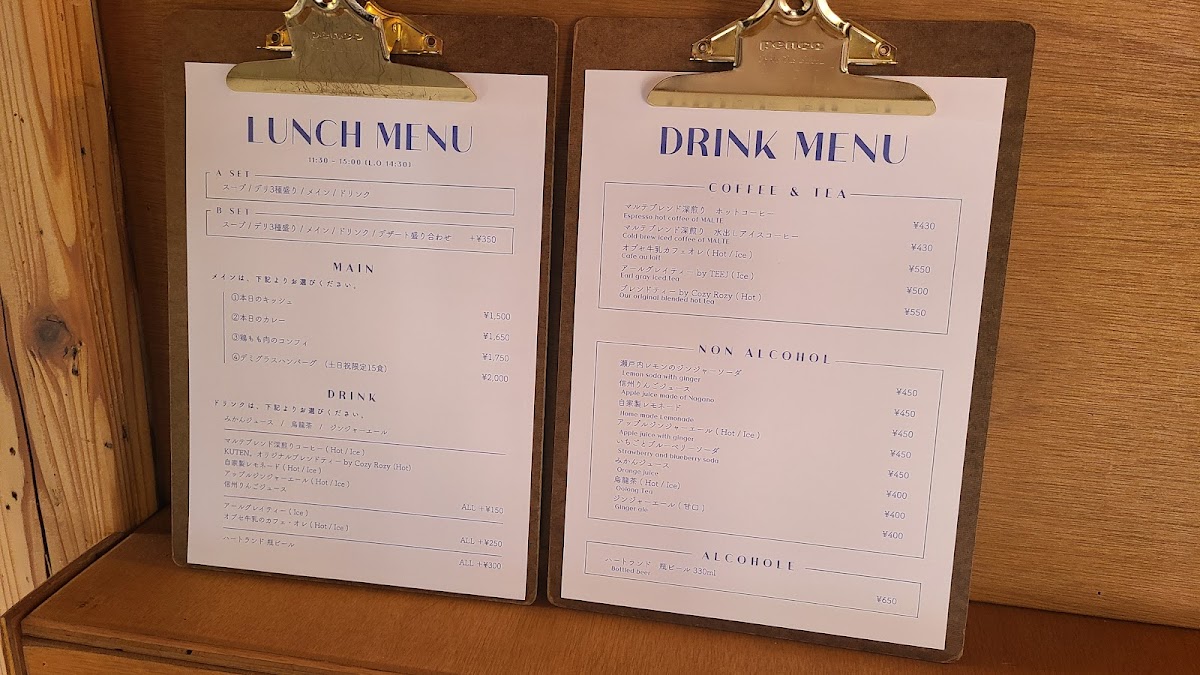 penco
LUNCH MENU
11:30 - 15:00 (L.O 14:30)
A SET
スープ / デリ3種盛り / メイン / ドリンク
B SET
スープ / デリ3種盛り / メイン / ドリンク / デザート盛り合わせ +¥350
MAIN
メインは、下記よりお選びください。
①本日のキッシュ ¥1,500
②本日のカレー ¥1,650
③鶏もも肉のコンフィ ¥1,750
④デミグラスハンバーグ (土日祝限定15食) ¥2,000
DRINK
ドリンクは、下記よりお選びください。
みかんジュース / 烏龍茶 / ジンジャーエール
マルテブレンド深煎りコーヒー ( Hot / Ice )
KUTEN。オリジナルブレンドティー by Cozy Rozy (Hot)
自家製レモネード ( Hot / Ice )
アップルジンジャーエール ( Hot / Ice )
信州りんごジュース
ALL +¥150
アールグレイティー ( Ice )
オブセ牛乳のカフェ・オレ ( Hot / Ice )
ALL +¥250
ハートランド 瓶ビール
ALL +¥300
penco
DRINK MENU
COFFEE & TEA
マルテブレンド深煎り ホットコーヒー
Espresso hot coffee of MALTE ¥430
マルテブレンド深煎り 水出しアイスコーヒー
Cold brew iced coffee of MALTE ¥430
オブセ牛乳カフェオレ ( Hot / Ice )
Cafe au lait ¥550
アールグレイティー by TEEJ ( Ice )
Earl gray iced tea ¥500
ブレンドティー by Cozy Rozy ( Hot )
Our original blended hot tea ¥550
NON ALCOHOL
瀬戸内レモンのジンジャーソーダ
Lemon soda with ginger ¥450
信州りんごジュース
Apple juice made of Nagano ¥450
自家製レモネード
Home made Lemonade ¥450
アップルジンジャーエール ( Hot / Ice )
Apple juice with ginger ¥450
いちごとブルーベリーソーダ
Strawberry and blueberry soda ¥450
みかんジュース
Orange juice ¥400
烏龍茶 ( Hot / Ice )
Oolong Tea ¥400
ジンジャーエール ( 甘口 )
Ginger ale ¥400
ALCOHOLE
ハートランド 瓶ビール 330ml
Bottled beer ¥650